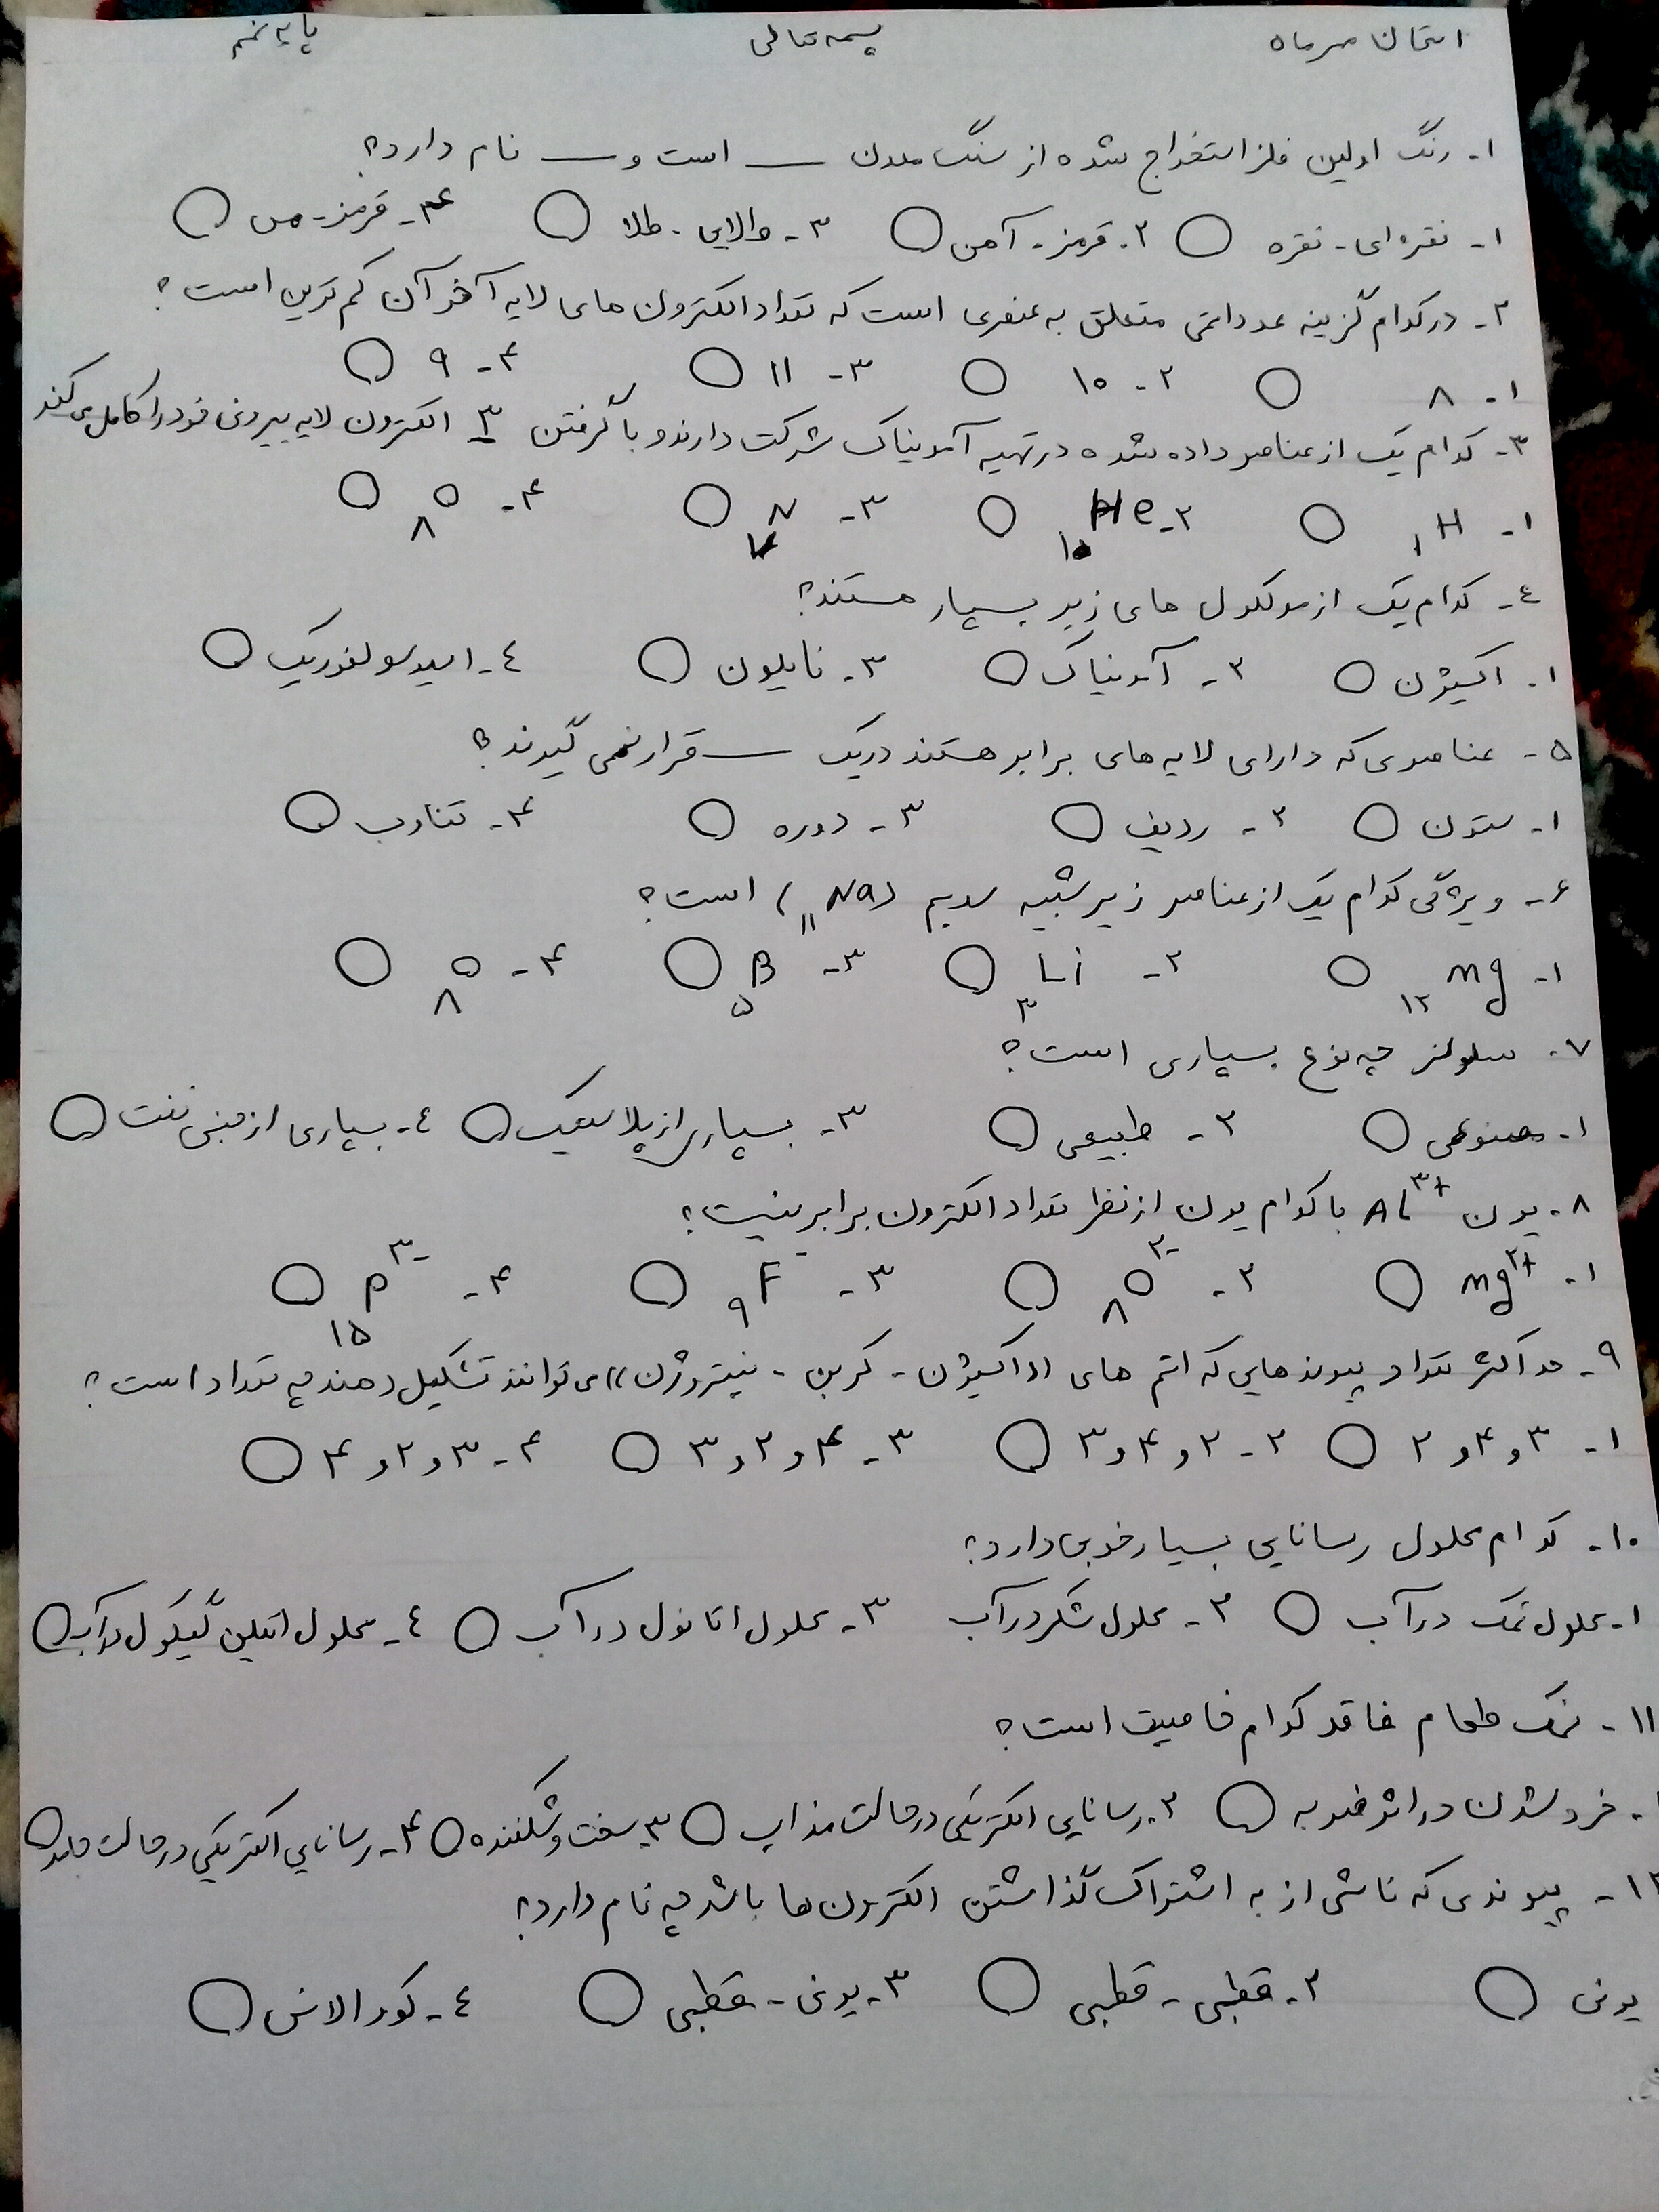 امتحان مهرماه بسمه تعالی پایه نهم
۱- رنگ اولین فلز استخراج شده از سنگ معدن ـــ است و ـــ نام دارد؟
۱- نقره ای - نقره ۲- قرمز - آهن ۳- طلایی - طلا ۴- قرمز - مس
۲- در کدام گزینه عدد اتمی متعلق به عنصری است که تعداد الکترون های لایه آخر آن کم ترین است؟
۱- ۸ ۲- ۱۰ ۳- ۱۱ ۴- ۹
۳- کدام یک از عناصر داده شده در تهیه آمونیاک شرکت دارند و با گرفتن ۳ الکترون لایه بیرونی خود را کامل می کند
۱- ₁H ۲- ₁₀He ۳- ₇N ۴- ₈O
٤- کدام یک از مولکول های زیر بسپار هستند؟
۱- اکسیژن ۲- آمونیاک ۳- نایلون ٤- اسید سولفوریک
۵- عناصری که دارای لایه های برابر هستند در یک ـــ قرار نمی گیرند؟
۱- ستون ۲- ردیف ۳- دوره ۴- تناوب
۶- ویژگی کدام یک از عناصر زیر شبیه سدیم (₁₁Na) است؟
۱- ₁₂Mg ۲- ₃Li ۳- ₅B ۴- ₈O
۷- سلولز چه نوع بسپاری است؟
۱- مصنوعی ۲- طبیعی ۳- بسپاری از پلاستیک ٤- بسپاری از جنس نفت
۸- یون Al³⁺ با کدام یون از نظر تعداد الکترون برابر نیست؟
۱- Mg²⁺ ۲- ₈O²⁻ ۳- ₉F⁻ ۴- ₁₅P³⁻
۹- حداکثر تعداد پیوندهایی که اتم های «اکسیژن - کربن - نیتروژن» می توانند تشکیل دهند چه تعداد است؟
۱- ۳ و ۴ و ۲ ۲- ۲ و ۴ و ۳ ۳- ۴ و ۲ و ۳ ۴- ۳ و ۲ و ۴
۱۰- کدام محلول رسانایی بسیار خوبی دارد؟
۱- محلول نمک در آب ۲- محلول شکر در آب ۳- محلول اتانول در آب ٤- محلول اتیلن گلیکول در آب
۱۱- نمک طعام فاقد کدام خاصیت است؟
۱- خرد شدن در اثر ضربه ۲- رسانایی الکتریکی در حالت مذاب ۳- سخت و شکننده ۴- رسانایی الکتریکی در حالت جامد
۱۲- پیوندی که ناشی از به اشتراک گذاشتن الکترون ها باشد چه نام دارد؟
یونی ۲- قطبی - قطبی ۳- یونی - قطبی ٤- کووالانسی